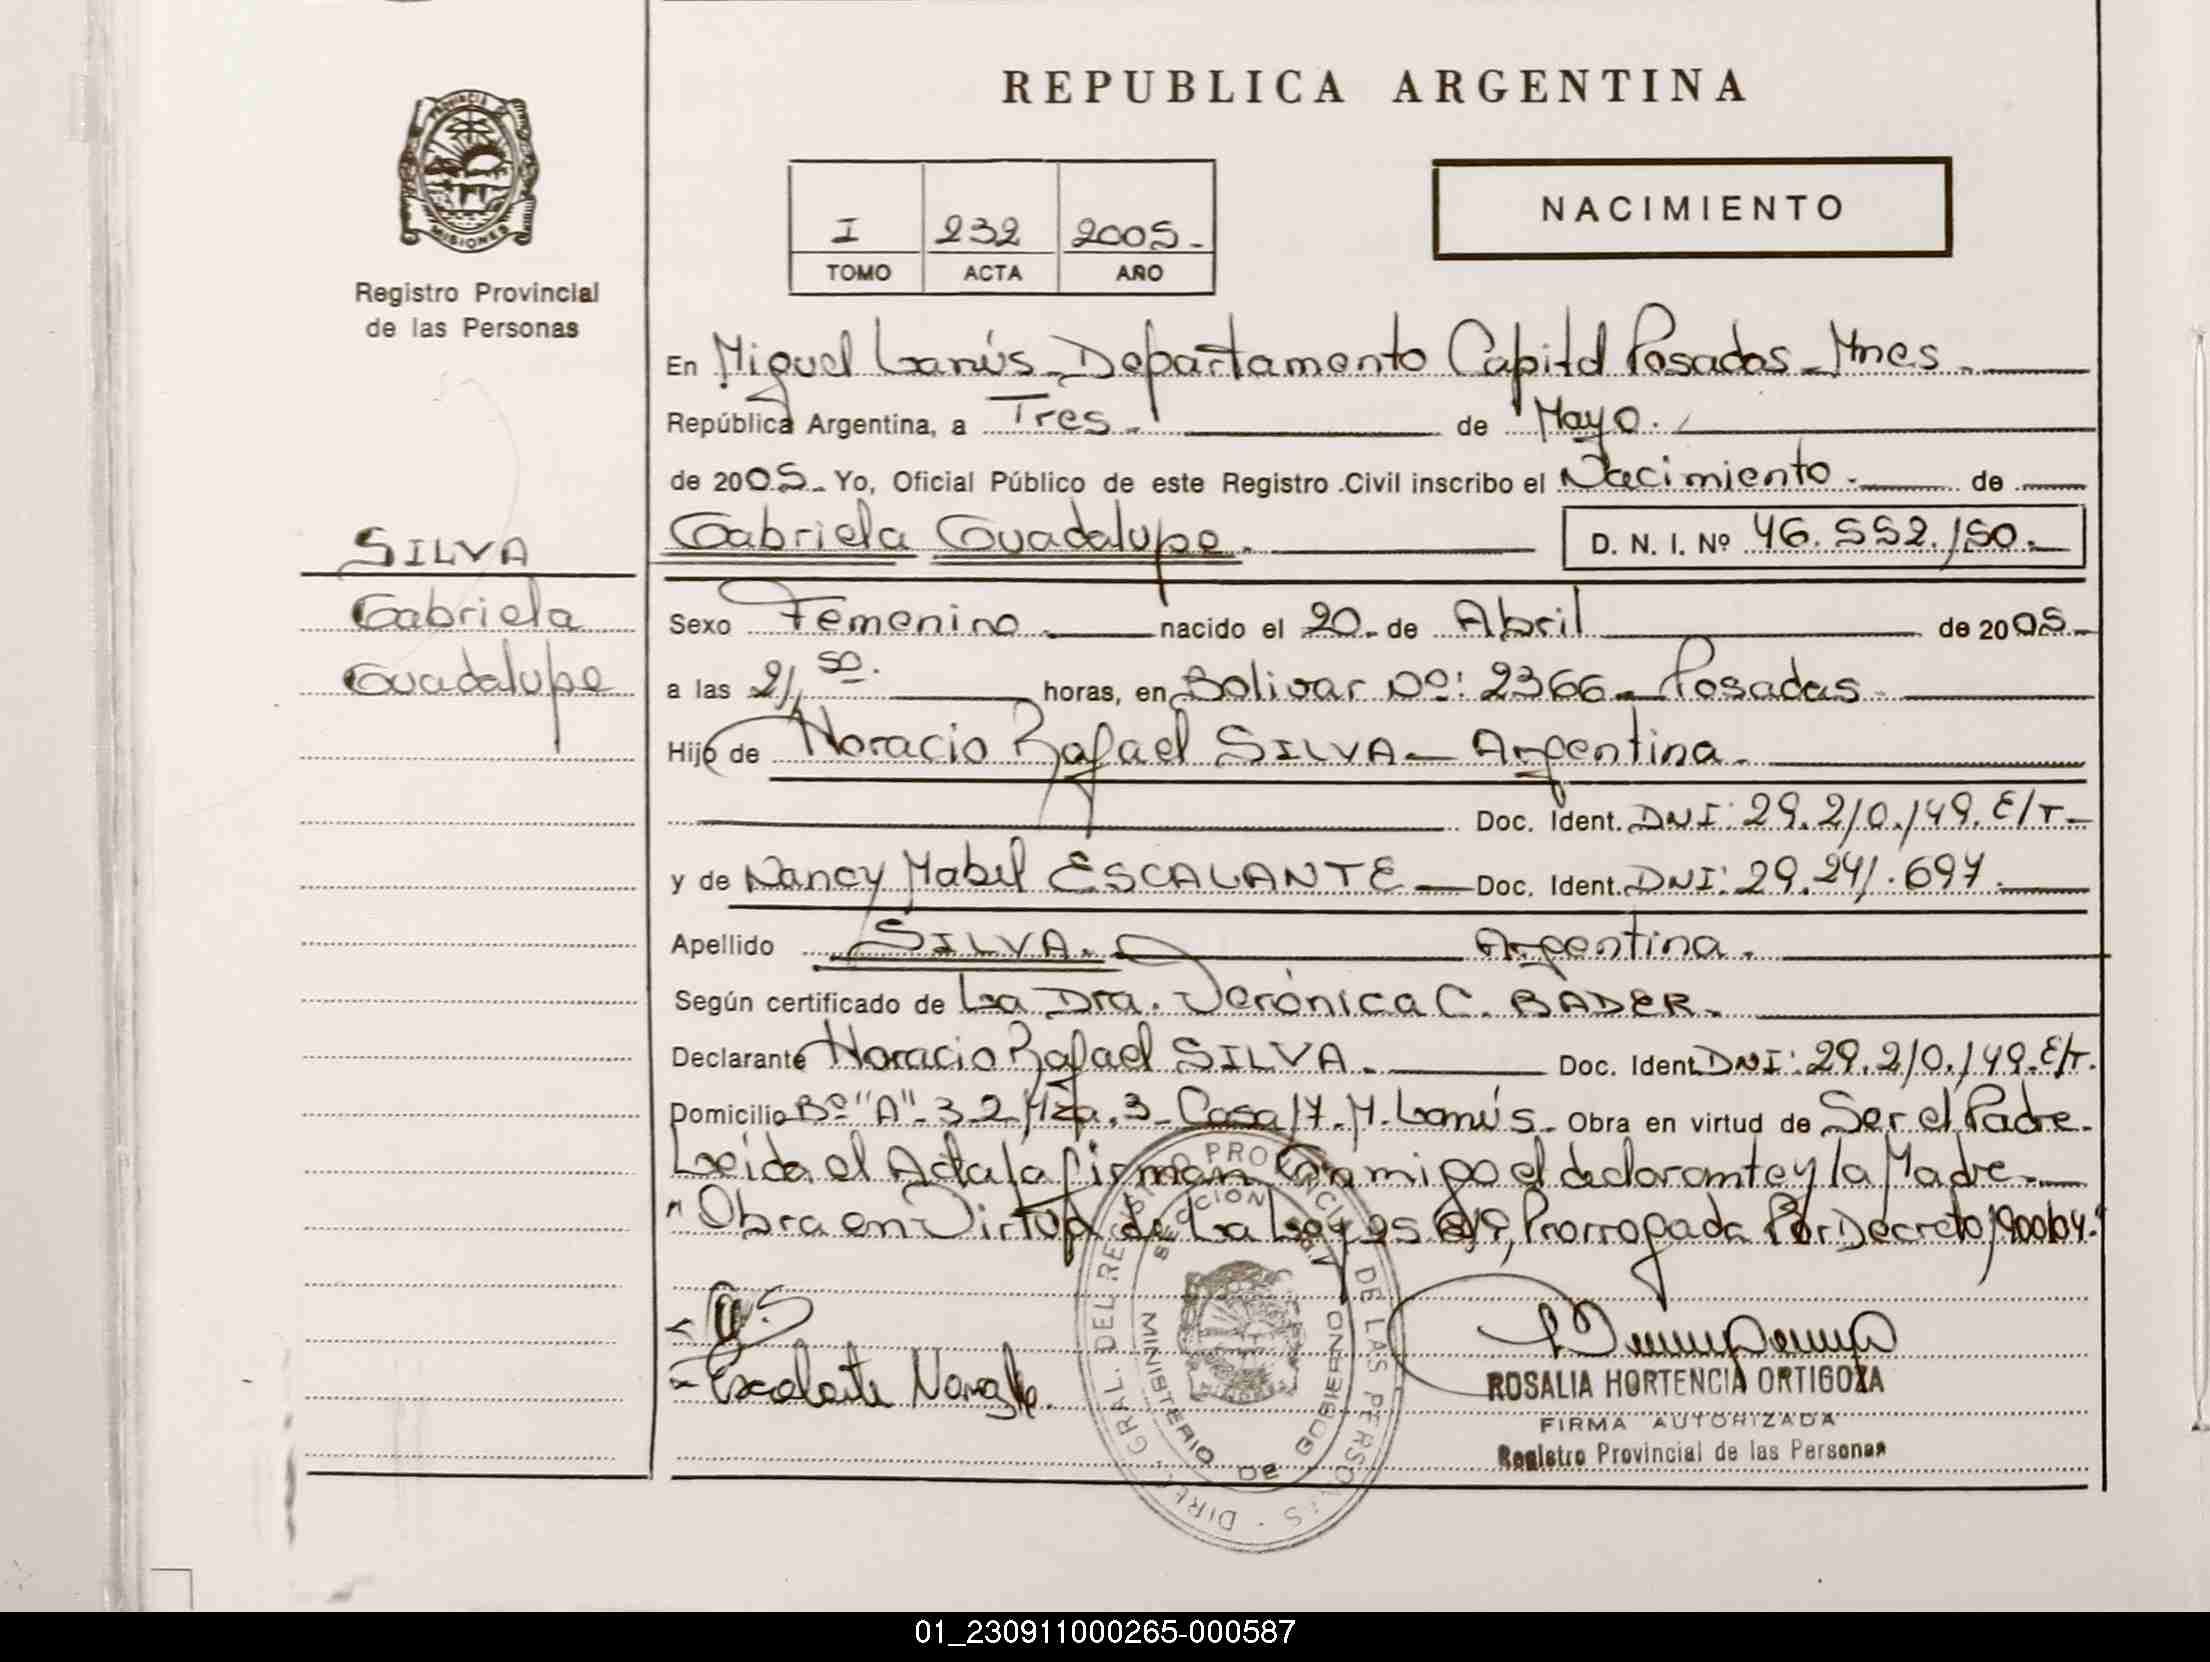 REPUBLICA ARGENTINA
PROVINCIA DE MISIONES
Registro Provincial
de las Personas
NACIMIENTO
I 232 2005.-
TOMO ACTA AÑO
En Miguel Lanús - Departamento Capital Posadas - Mnes.-
República Argentina, a Tres.- de Mayo.-
de 2005.- Yo, Oficial Público de este Registro Civil inscribo el Nacimiento.- de
Gabriela Guadalupe.- D. N. I. Nº 46.552.150.-
SILVA
Gabriela
Guadalupe
Sexo Femenino.- nacido el 20.- de Abril de 2005.-
a las 21,50. horas, en Bolivar Nº: 2366 - Posadas.-
Hijo de Horacio Rafael SILVA - Argentina.-
Doc. Ident. DNI: 29.210.149. E/T.-
y de Nancy Mabel ESCALANTE - Doc. Ident. DNI: 29.241.697.-
Apellido SILVA.- Argentina.-
Según certificado de La Dra. Verónica C. BADER.-
Declarante Horacio Rafael SILVA.- Doc. Ident. DNI: 29.210.149. E/T.
Domicilio Bº "A"-32 Mza. 3 - Casa 17. M. Lanús. Obra en virtud de Ser el Padre.-
Leída el Acta la firman Conmigo el declarante y la Madre.-
"Obra en Virtud de La Ley 25 819, Prorrogada Por Decreto 1900/04."
Escalante
ROSALIA HORTENCIA ORTIGOZA
FIRMA AUTORIZADA
Registro Provincial de las Personas
DIREC. GRAL. DEL REGISTRO PROVINCIAL DE LAS PERSONAS
MINISTERIO DE GOBIERNO
01_230911000265-000587